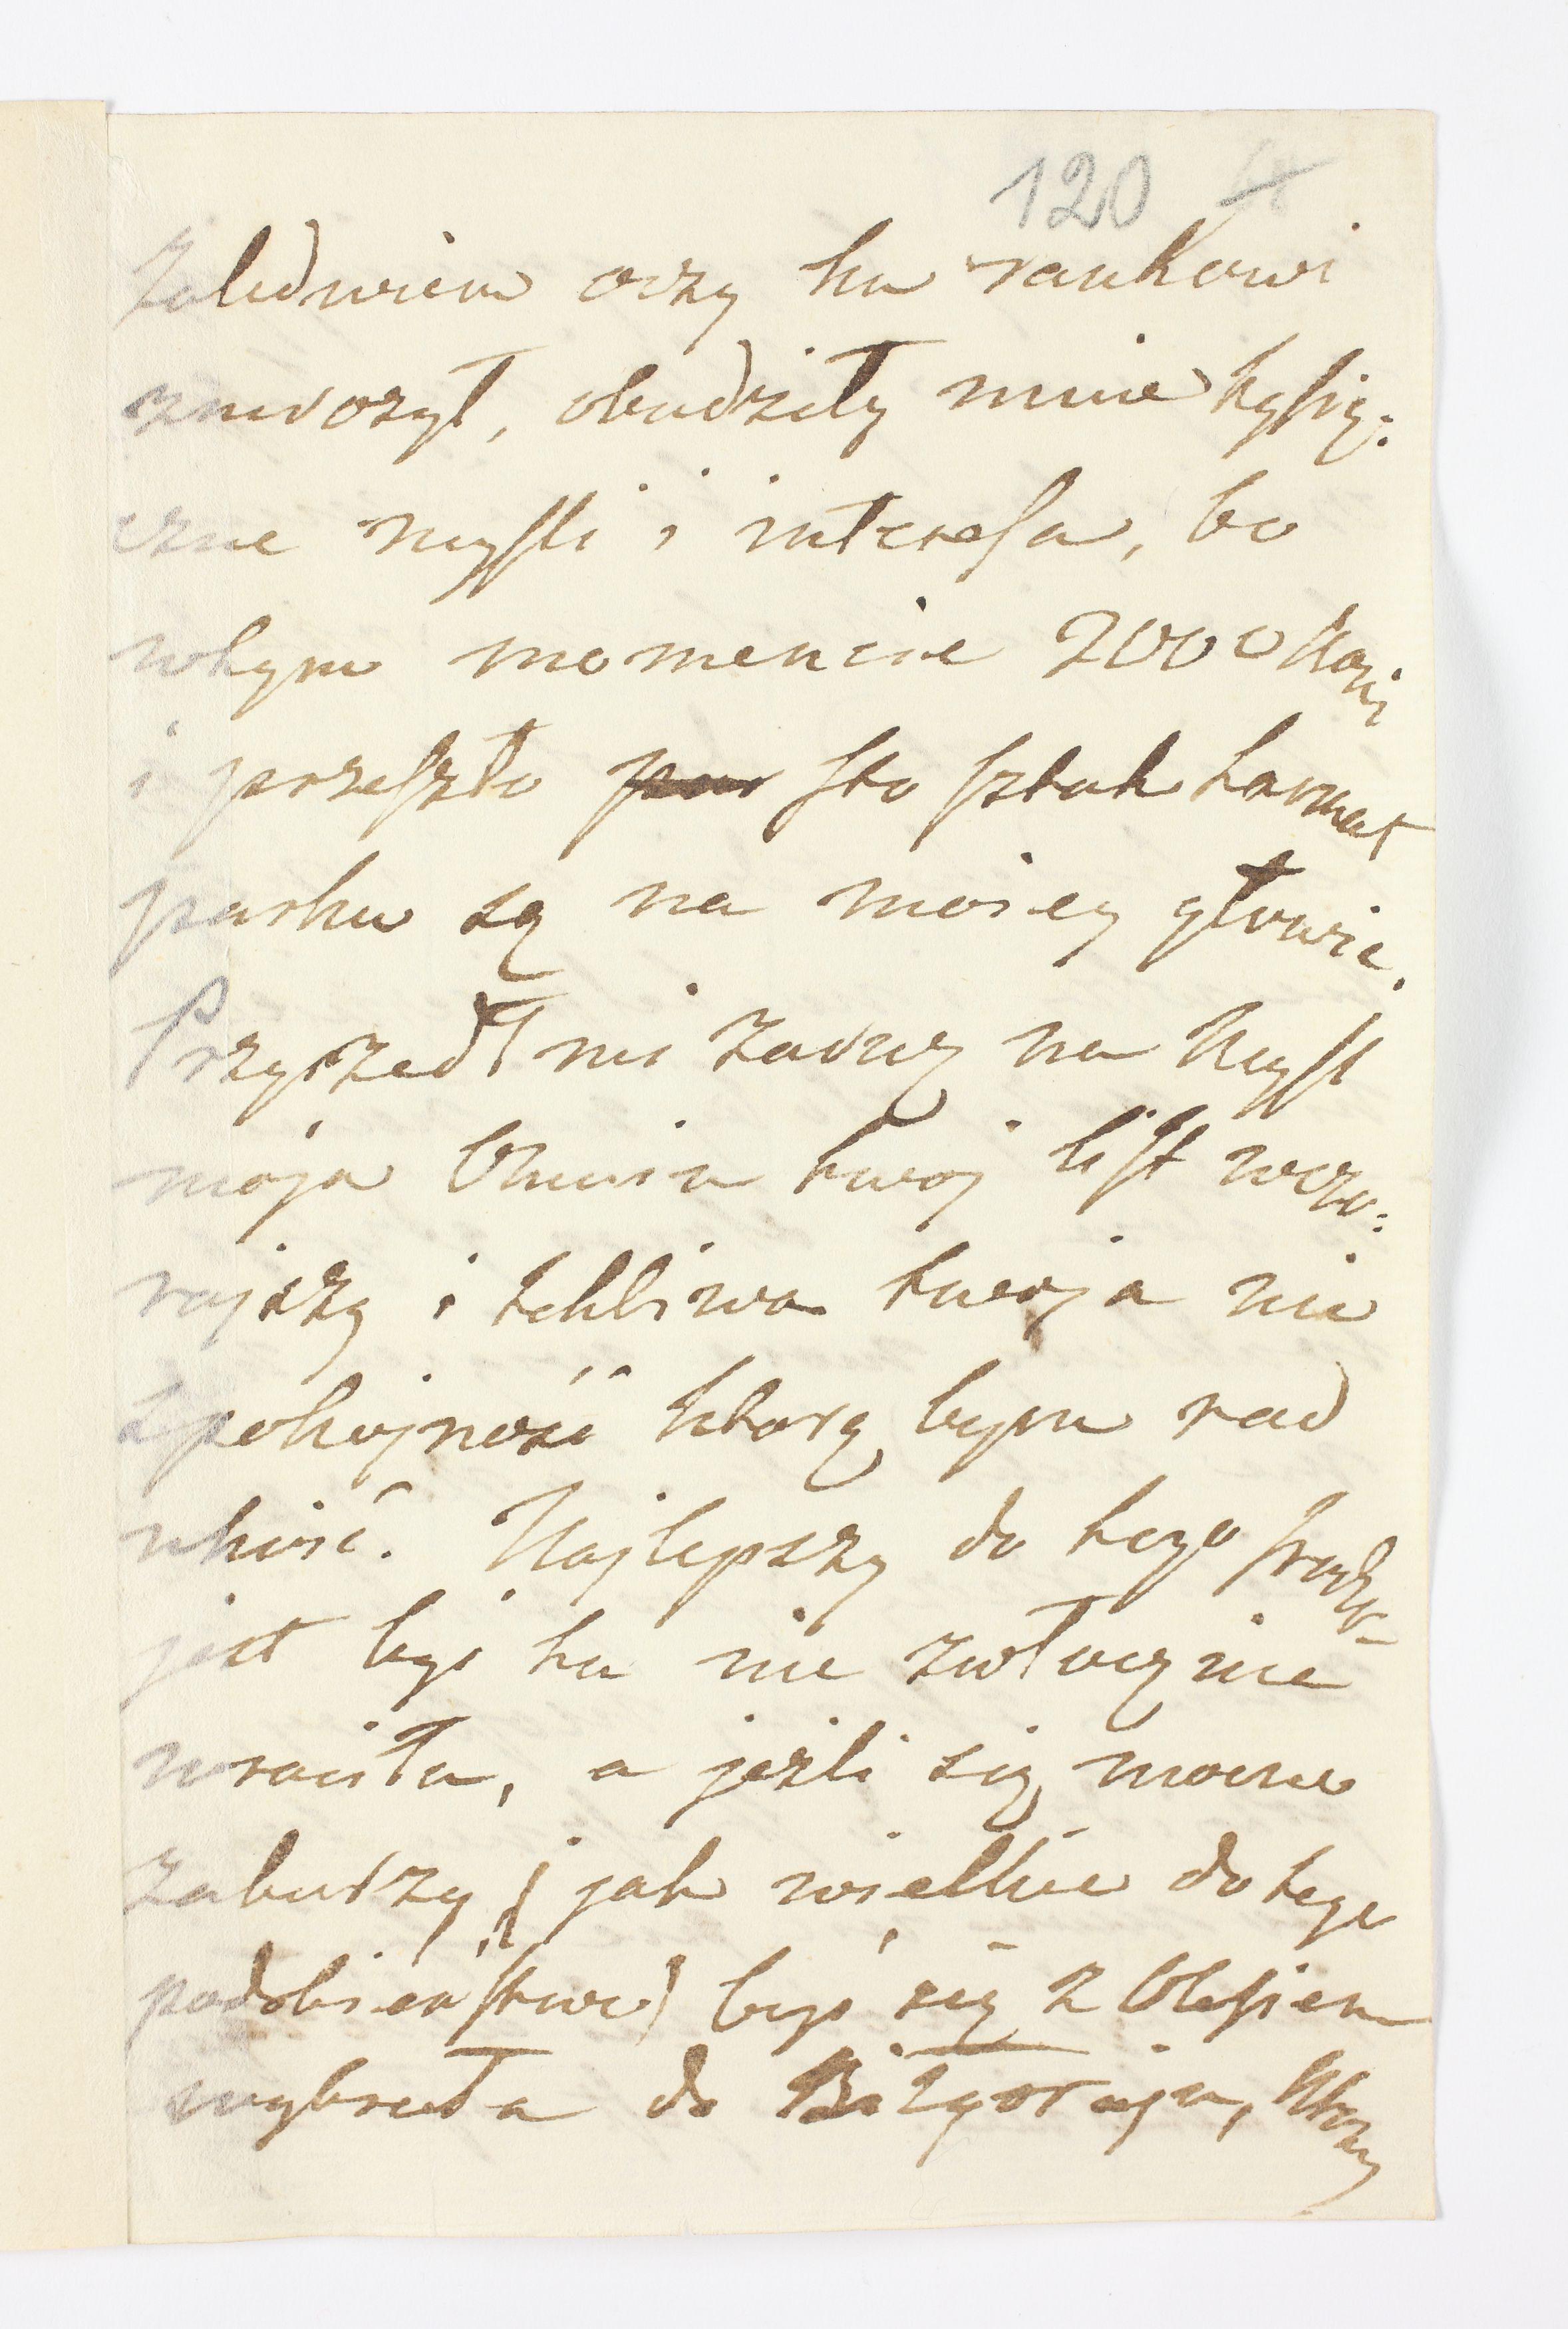 120
Zaledwiem oczy ku rankowi
zmrożył, obudziły mnie tysią:
czne myśli i interesa, bo
wtym momencie 2000 koni
i przeszło sto sztuk harmat
parku są na moiey głowie.
Przyszedł mi zaraz na myśl
moja Omsiu twoj list wczo:
rajszy i tchliwa twoja nie
spokojność ktorą bym rad
ukoić. Najlepszy do tego środek
jest byś tu nie zwłocznie
wrociła, a jeźli się mocno
zaburzy (jak wielkie do tego
podobieństwo) byś się z Olesiem
wybrała do Biłgoraja, ktory